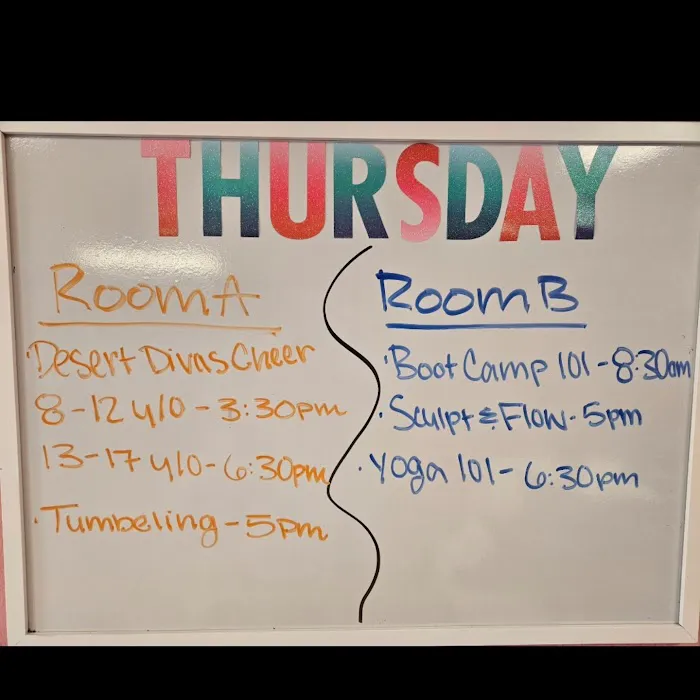 THURSDAY
Room A
·Desert Divas Cheer
8-12 y/o - 3:30pm
13-17 y/o - 6:30pm
·Tumbeling - 5pm
Room B
·Boot Camp 101 - 8:30am
·Sculpt & Flow - 5pm
·Yoga 101 - 6:30pm